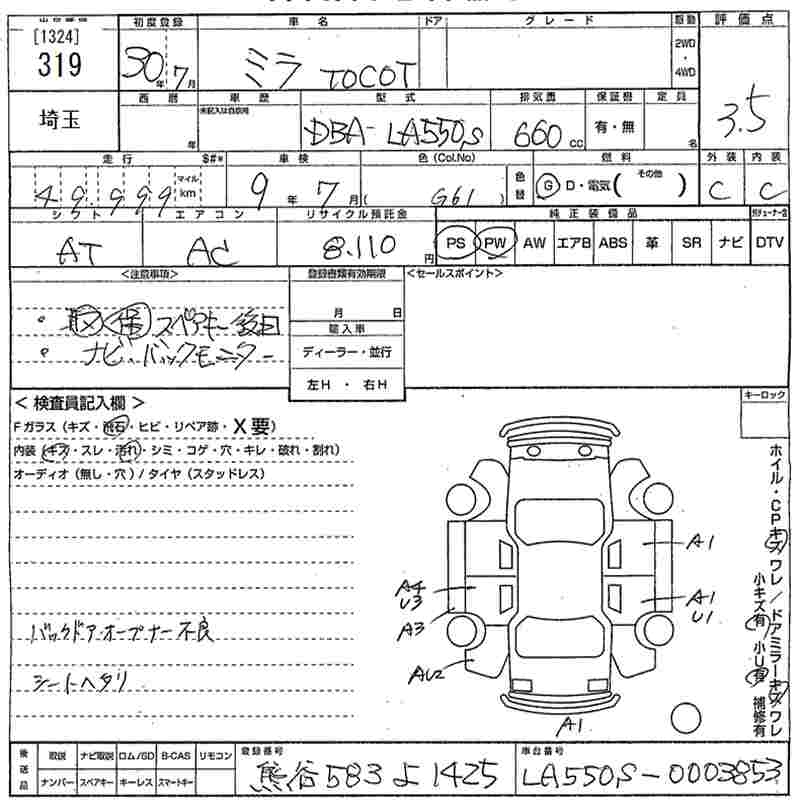 [1324]
319
初度登録 車名 ドア グレード 駆動 評価点
30年7月 ミラ TOCOT 2WD・4WD 3.5
埼玉
西暦 車歴 型式 排気量 保証書 定員
年 未記入は自家用 DBA-LA550S 660cc 有・無 名
走行 $#* 車検 色(Col.No) 燃料 外装 内装
49,999 マイル km 9年7月 ( G61 ) 色替 G D・電気( その他 ) C C
シフト エアコン リサイクル預託金 純正装備品
AT AC 8,110円 PS PW AW エアB ABS 革 SR ナビ DTV
<注意事項> 登録書類有効期限 <セールスポイント>
月 日
・取 保 スペアキー後日 輸入車
・ナビ、バックモニター ディーラー・並行
左H・右H
<検査員記入欄> キーロック
Fガラス(キズ・飛石・ヒビ・リペア跡・X要)
内装(キズ・スレ・汚れ・シミ・コゲ・穴・キレ・破れ・割れ)
オーディオ(無し・穴)/タイヤ(スタッドレス)
ホイル・CPキズワレ/ドアミラーキズワレ
小キズ有 小U有 補修有
A1
A4
U3
A1
U1
A3
AU2
A1
バックドアオープナー不良
シートヘタリ
後送品 取説 ナビ取説 ロム/SD B-CAS リモコン 登録番号 車台番号
ナンバー スペアキー キーレス スマートキー 熊谷583よ1425 LA550S-0003853